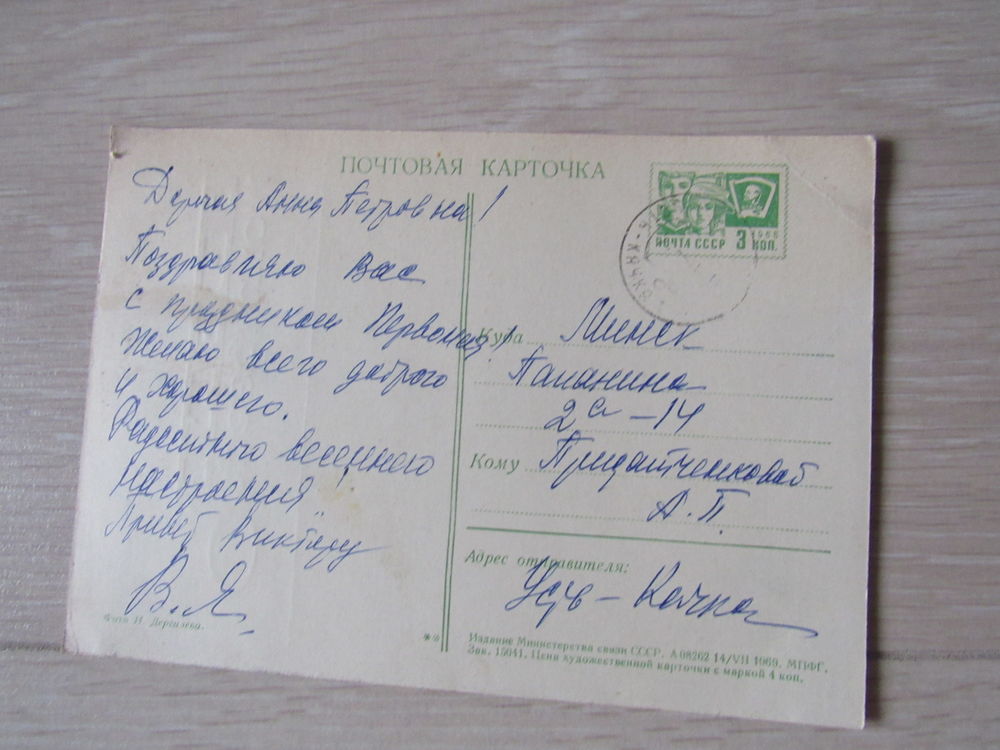 ПОЧТОВАЯ КАРТОЧКА
Дорогая Анна Петровна!
Поздравляю Вас
с праздником Первомая!
Желаю всего доброго
и хорошего.
Радостного весеннего
настроения
Привет Виктору
В. Я.
Фото И. Дергилева.
ПОЧТА СССР 3 КОП.
1966
Куда Минск
Папанина
2а – 14
Кому Придатченковой
А. П.
Адрес отправителя:
Усть – Качка
Издание Министерства связи СССР. А 08262 14/VII 1969. МПФГ.
Зак. 15041. Цена художественной карточки с маркой 4 коп.